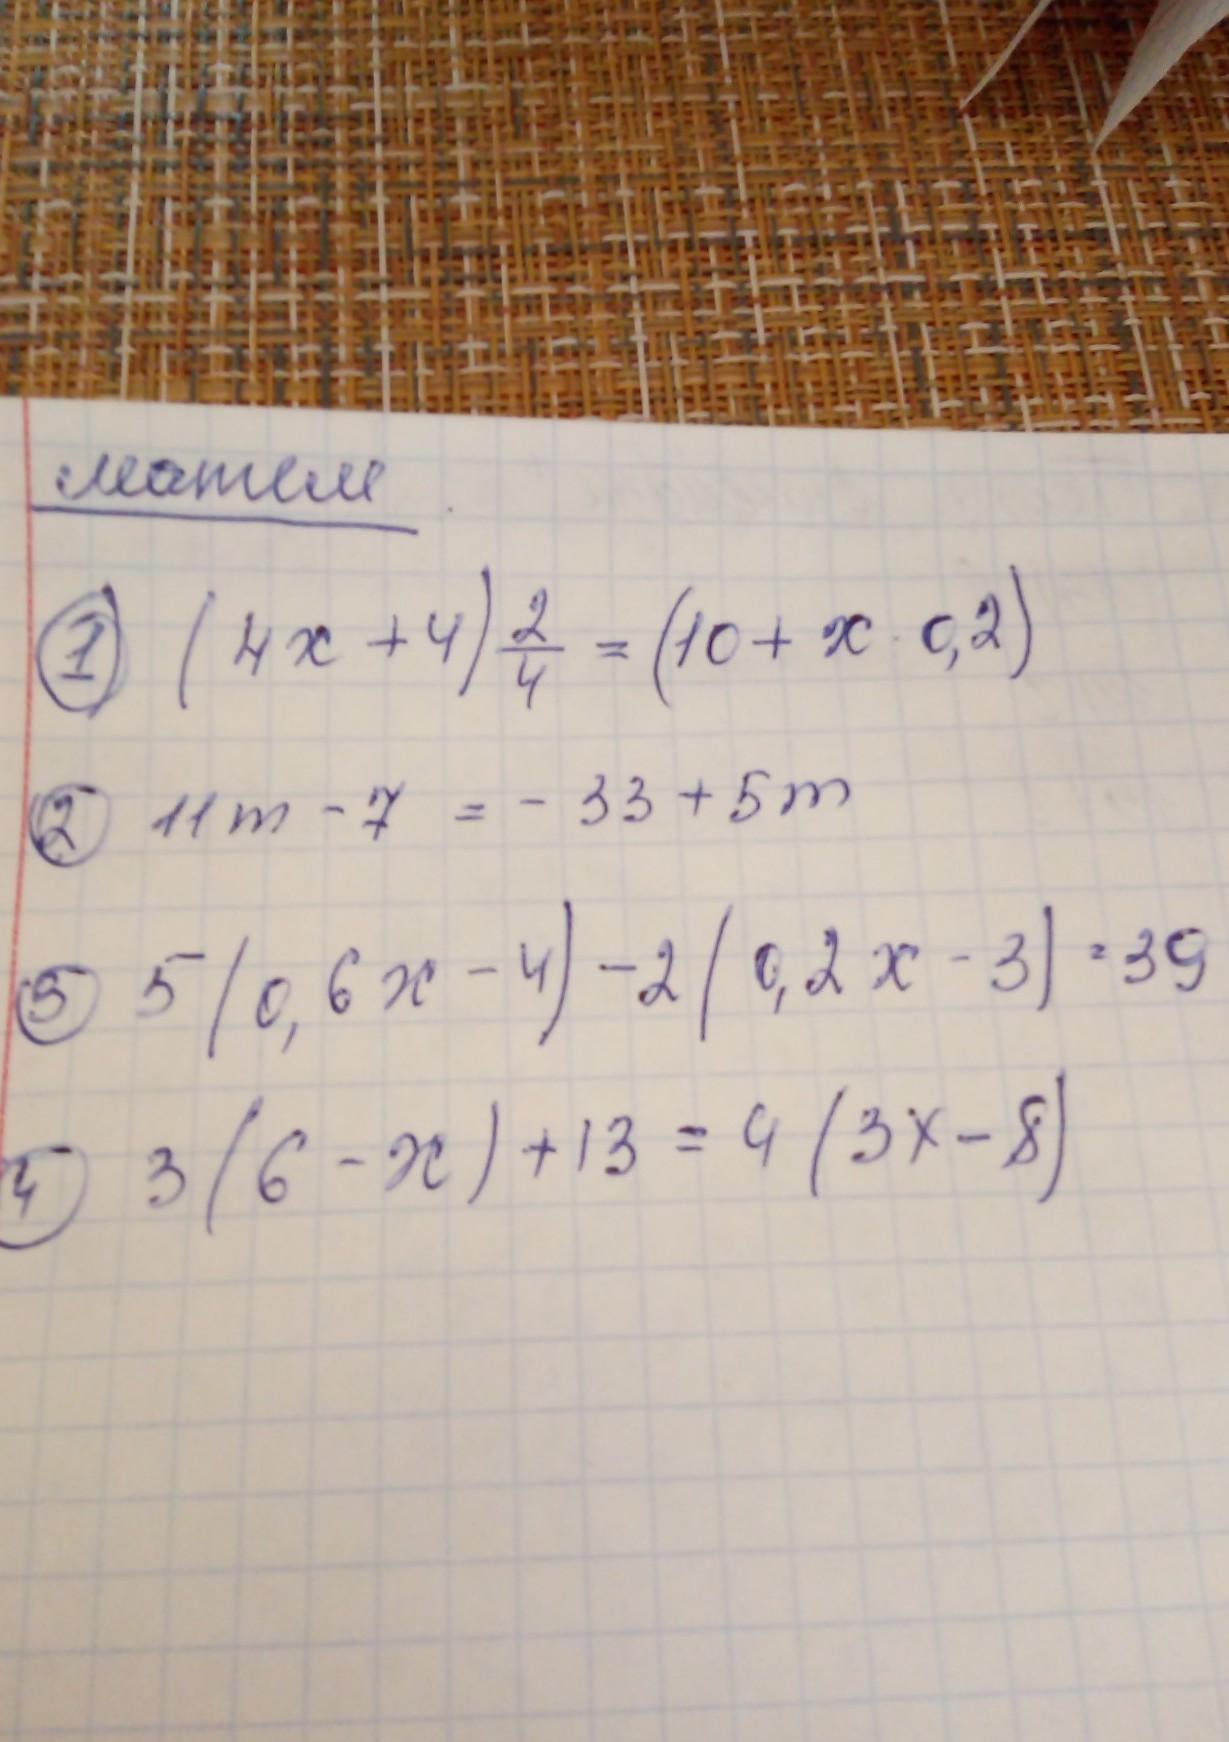 матем
① (4x + 4) 2/4 = (10 + x · 0,2)
② 11m - 7 = - 33 + 5m
③ 5(0,6x - 4) - 2(0,2x - 3) = 39
④ 3(6 - x) + 13 = 4(3x - 8)